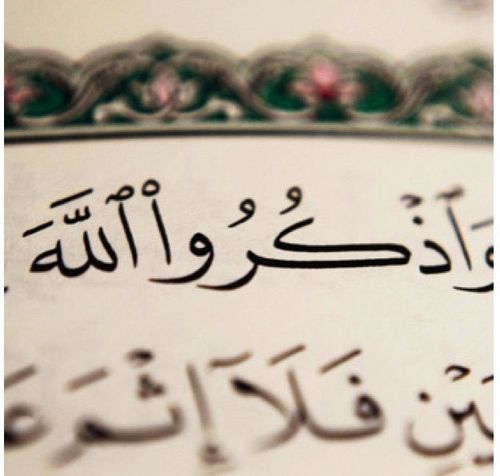 وَٱذْكُرُوا۟ ٱللَّهَ
يْنِ فَلَآ إِثْمَ عَ